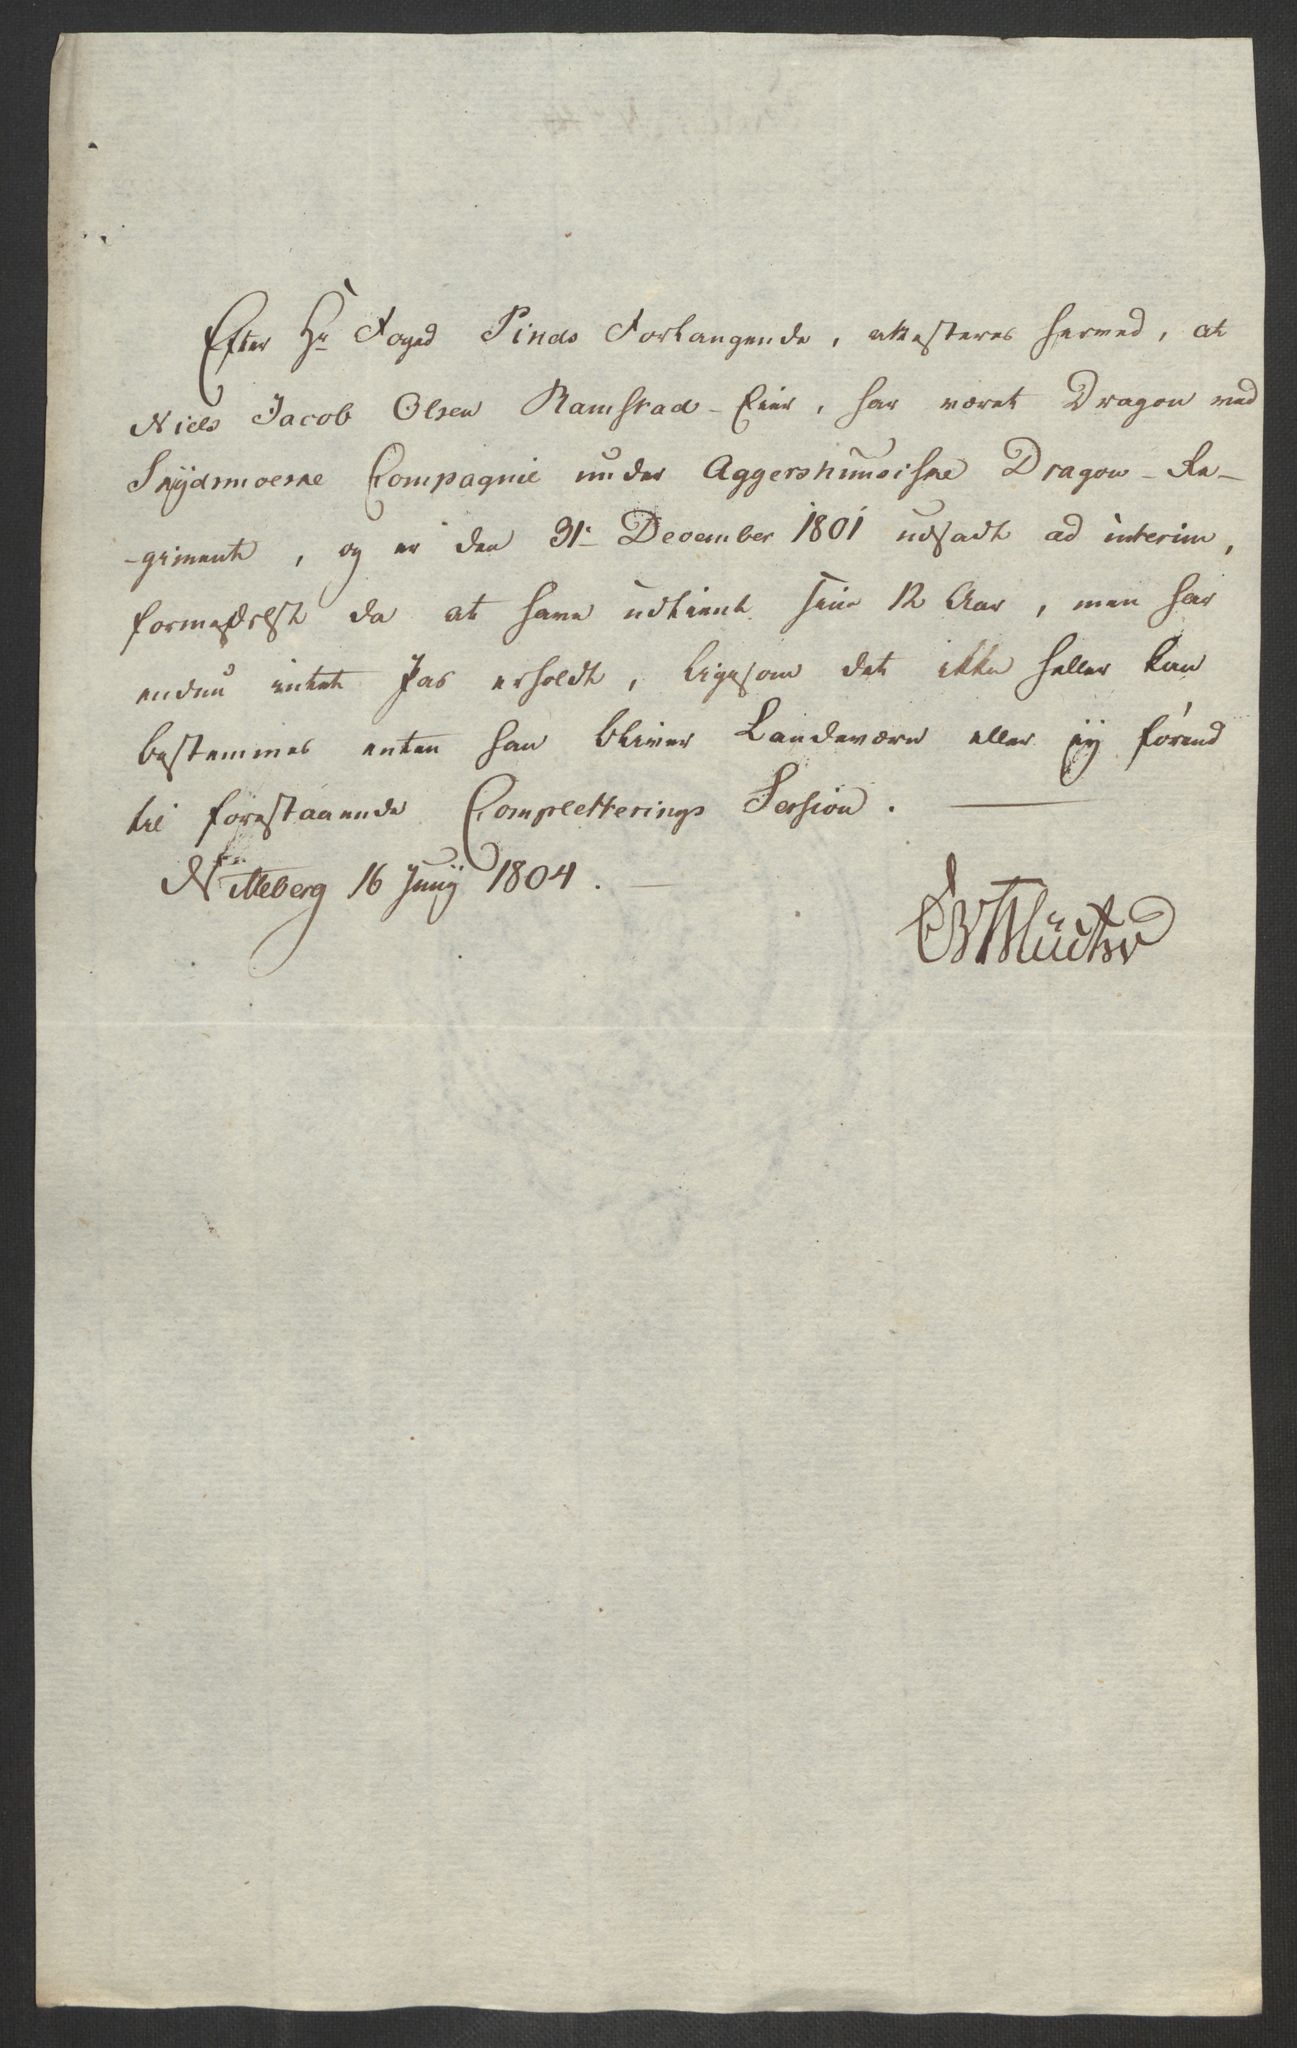 Efter Hr Foged Pinds Forlangende, attesteres herved, at
Niels Jacob Olsen Ramstad-Eier, har været Dragon ved
Snydsmoeske Compagnie under Aggershuusiske Dragon-Re-
-giment, og er den 31te December 1801 udsadt ad interim,
formedelst da at have udtient sine 12 Aar, men har
endnu intet Pas erholdt, ligesom det ikke heller kan
bestemmes enten han bliver Landeværn eller ey førend
til forestaaende Completterings Session.
Nitteberg 16 Junij 1804.